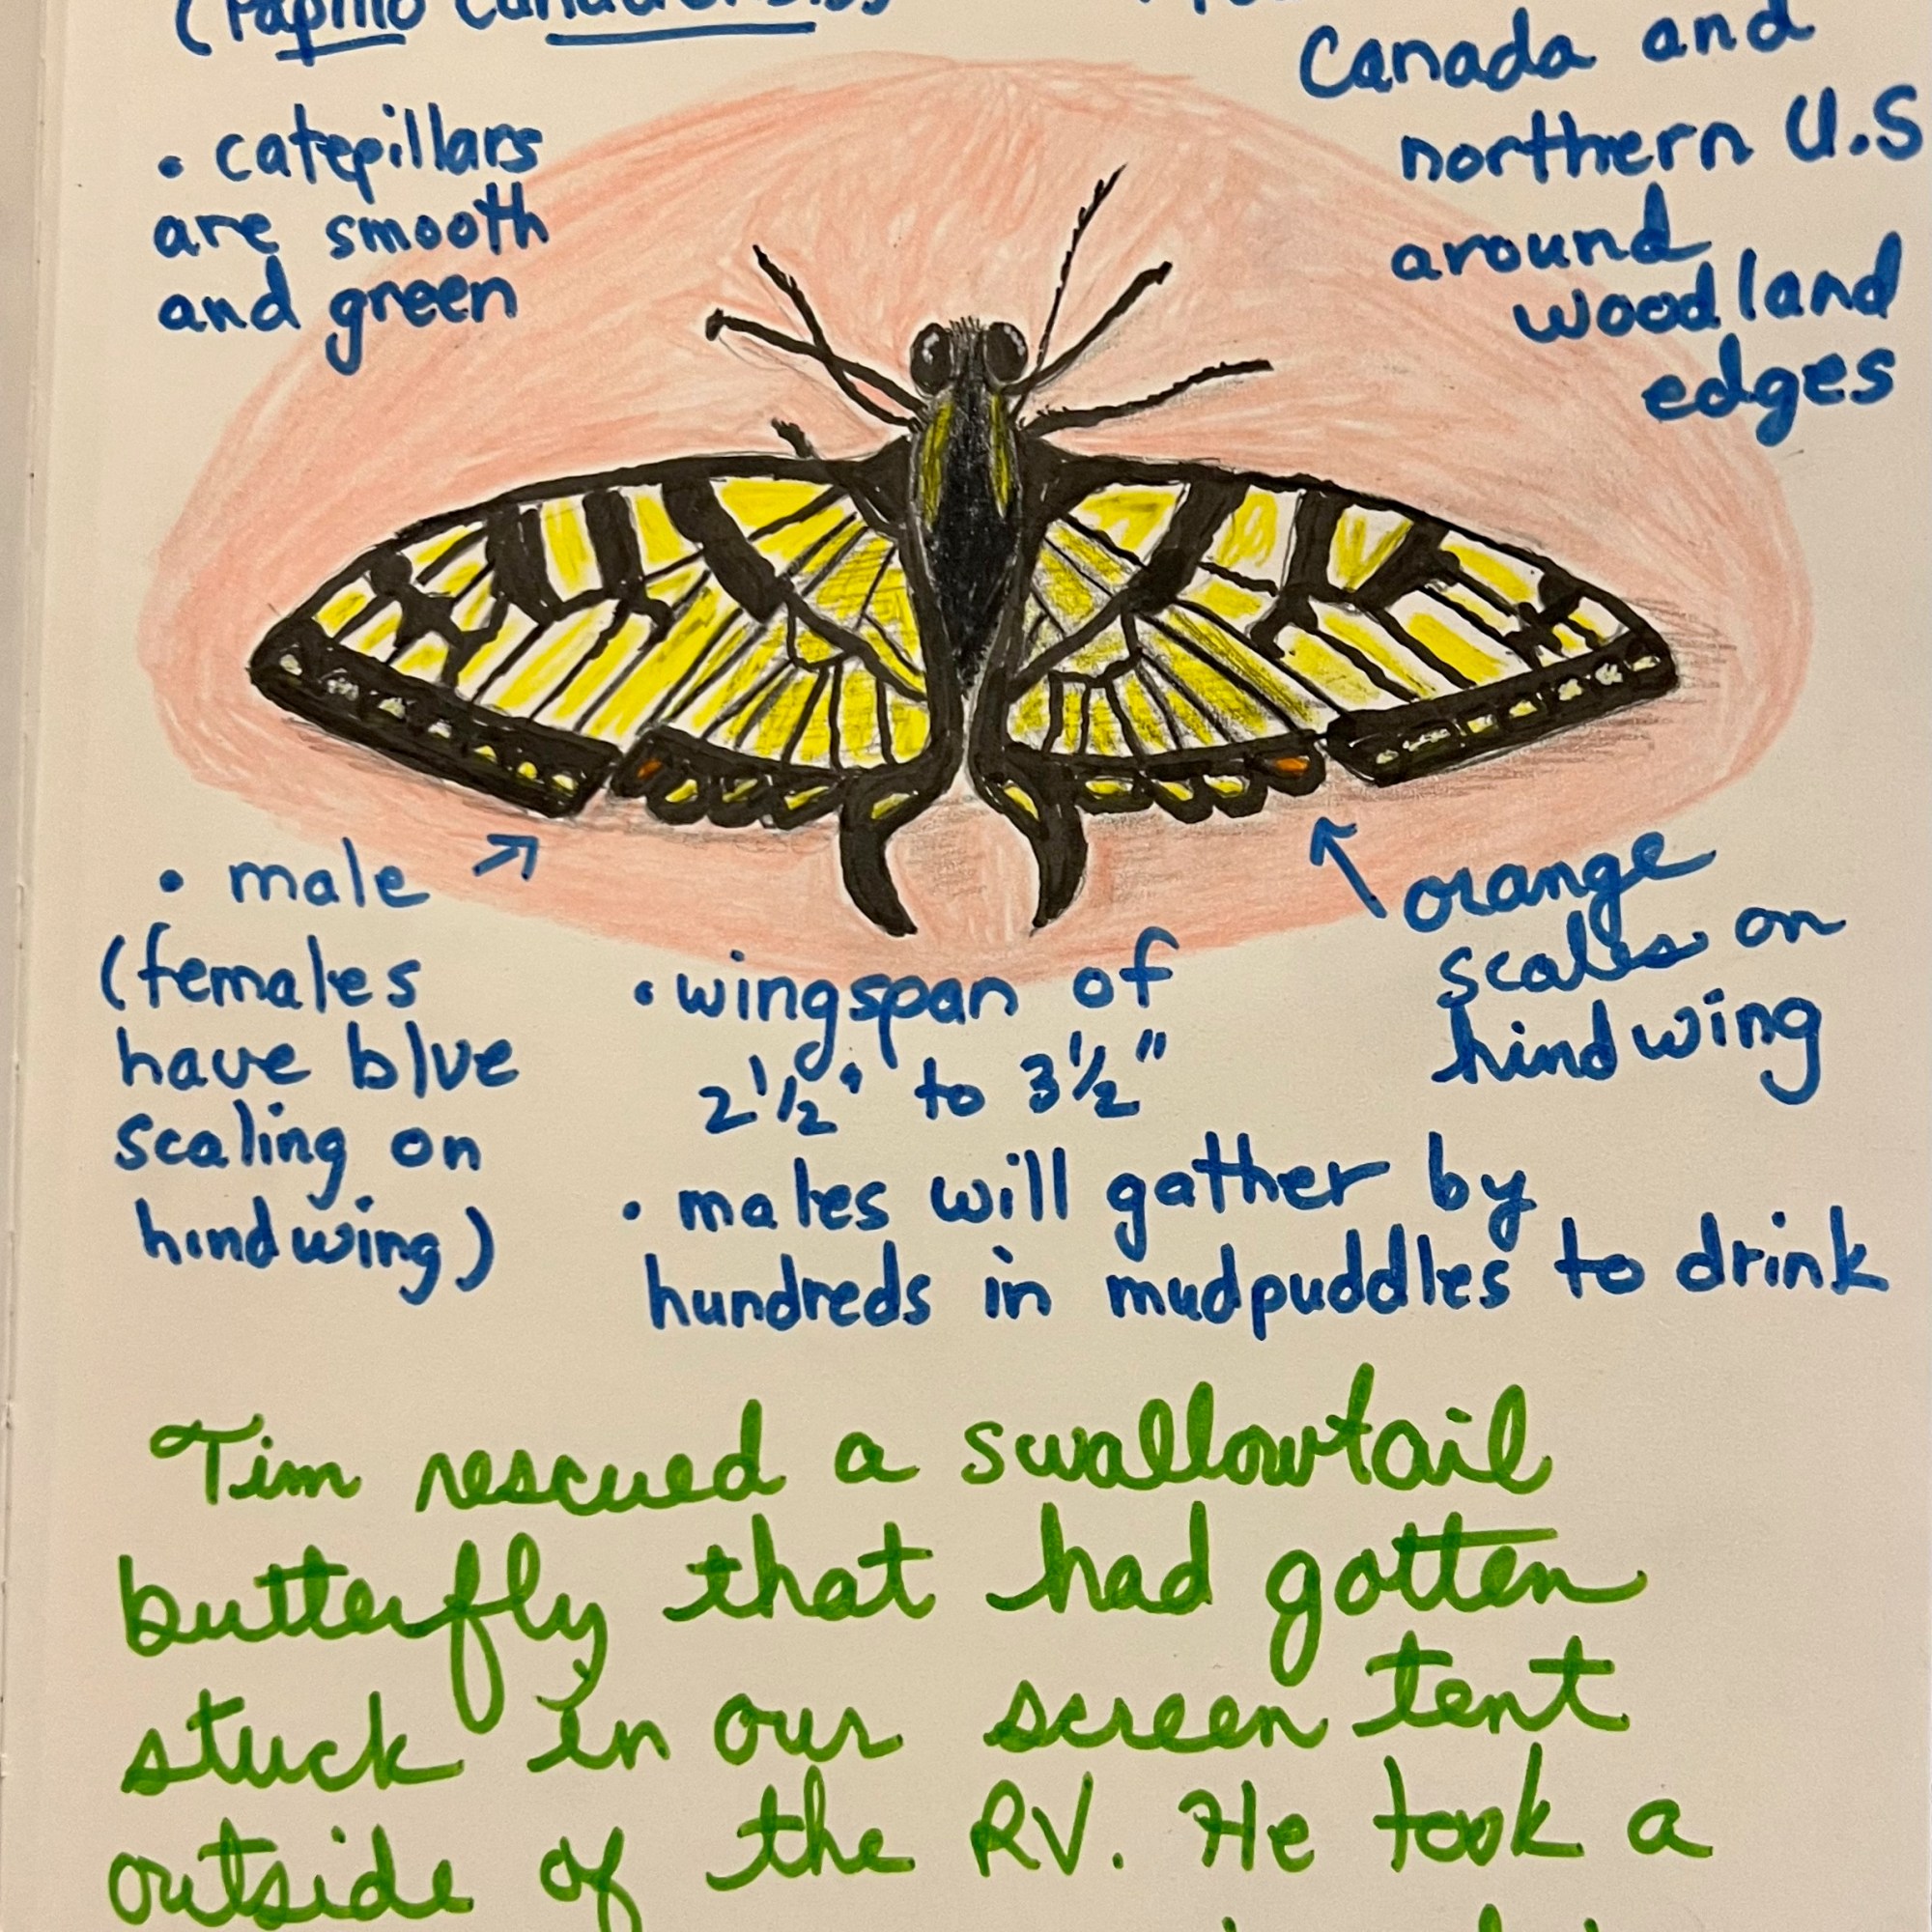 (Papilio
Canada and
northern U.S
around
woodland
edges
• catepillars
are smooth
and green
• male
(females
have blue
scaling on
hindwing)
orange
scales on
hindwing
• wingspan of
2 1/2" to 3 1/2"
• males will gather by
hundreds in mudpuddles to drink
Tim rescued a swallowtail
butterfly that had gotten
stuck in our screen tent
outside of the RV. He took a